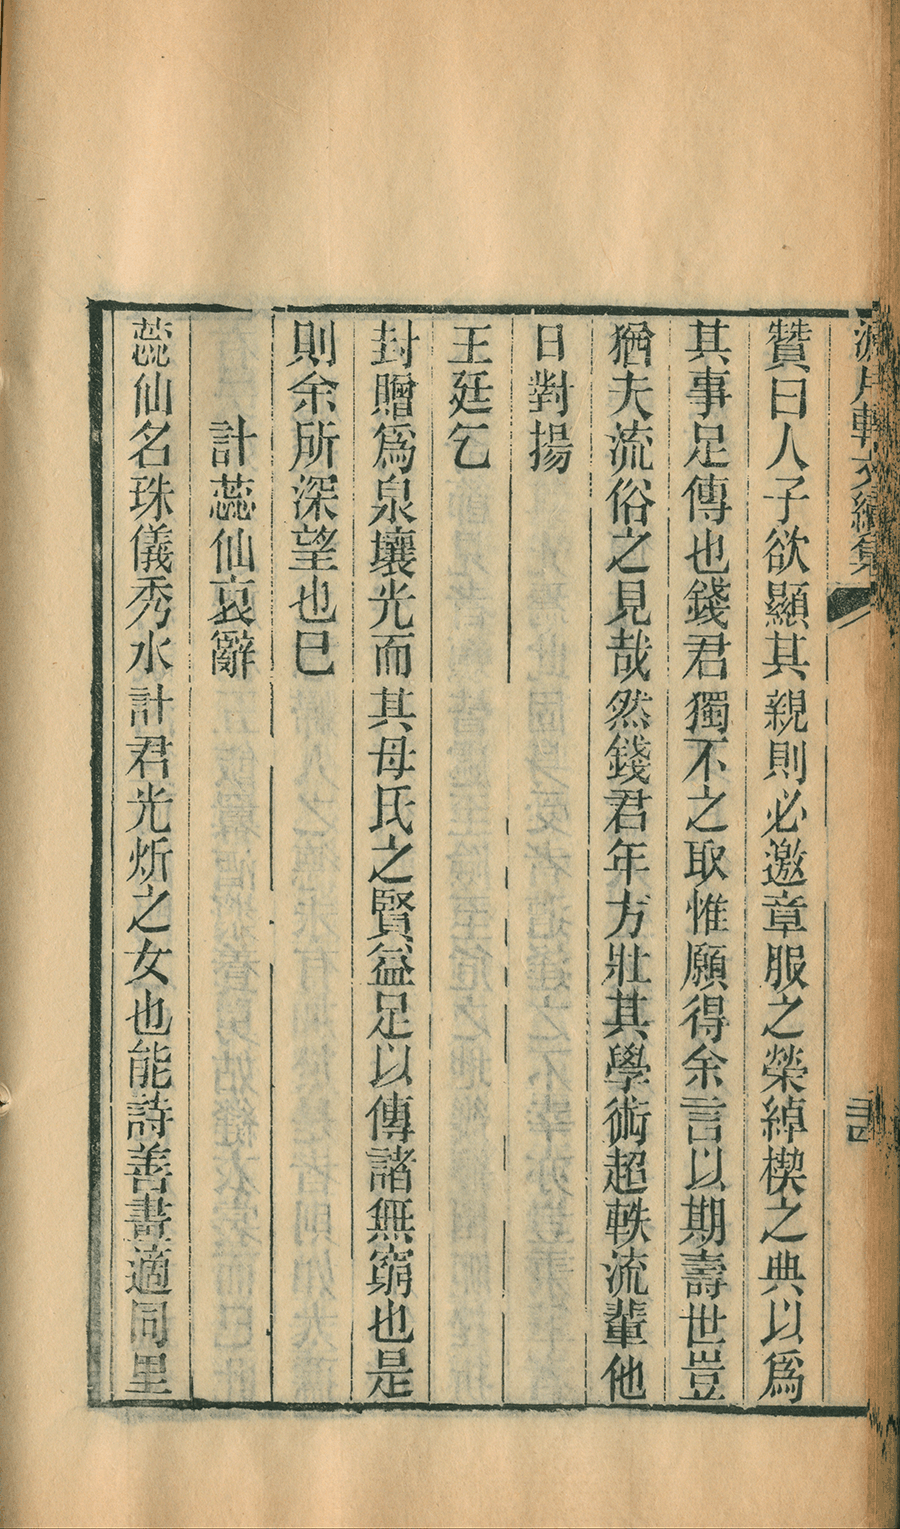 贊曰人子欲顯其親則必邀章服之榮綽楔之典以爲
其事足傳也錢君獨不之取惟願得余言以期壽世豈
猶夫流俗之見哉然錢君年方壯其學術超軼流輩他
日對揚
王廷乞
封贈爲泉壤光而其母氏之賢益足以傳諸無窮也是
則余所深望也巳
計蕊仙哀辭
蕊仙名珠儀秀水計君光炘之女也能詩善畫適同里